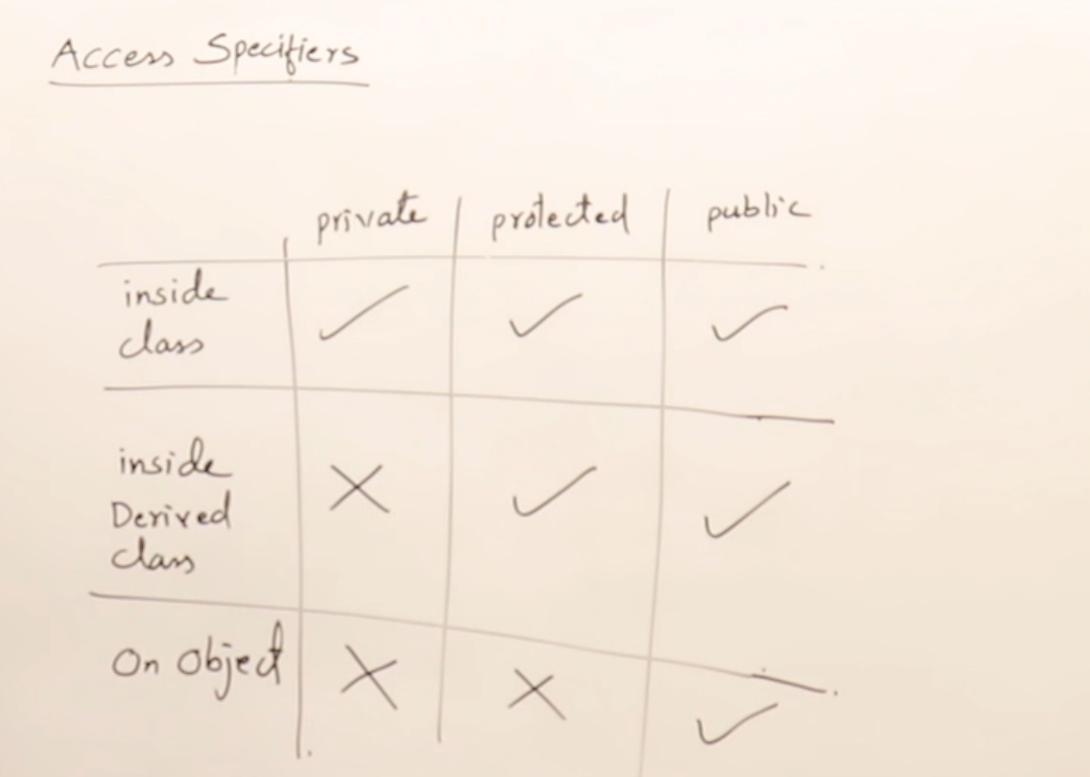 Access Specifiers
private protected public
inside
class ✓ ✓ ✓
inside
Derived
class ✗ ✓ ✓
On Object ✗ ✗ ✓